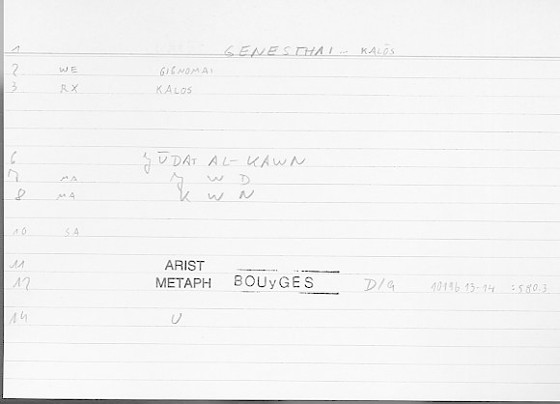 1 GENESTHAI - KALŌS
2 WE GIGNOMAI
3 RX KALOS
6 ǧŪDAT AL-KAWN
7 MA ǧ W D
8 MA K W N
10 SA
11 ARIST
12 METAPH BOUyGES D/G 1019b13-14 :580.3
14 U